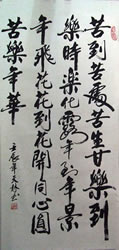 苦到苦處苦生甘樂到
樂時楽化霧年到年景
年飛花花到花開同心圓
苦樂年華
壬辰年